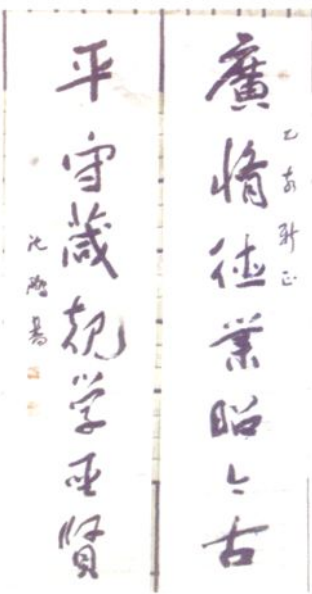 廣脩德業昭今古
乙亥新正
平守箴規学聖賢
沈鵬書